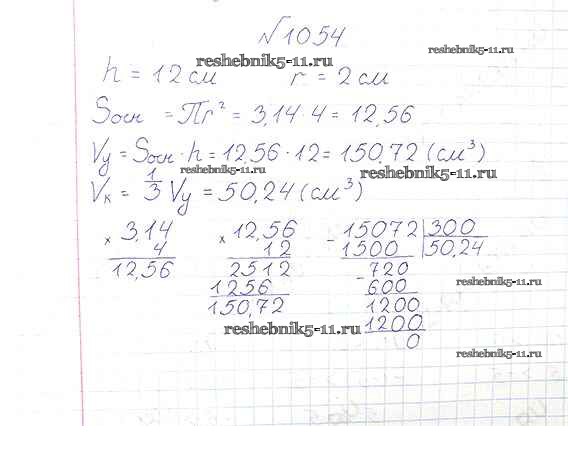 №1054
reshebnik5-11.ru
reshebnik5-11.ru
h = 12 см r = 2 см
Sосн = Πr² = 3,14 · 4 = 12,56
Vу = Sосн · h = 12,56 · 12 = 150,72 (см³)
reshebnik5-11.ru
reshebnik5-11.ru
Vк = 1/3 Vу = 50,24 (см³)
× 3,14
4
12,56
× 12,56
12
2512
1256
150,72
- 15072 | 300
1500 | 50,24
- 720
600
1200
1200
0
reshebnik5-11.ru
reshebnik5-11.ru
reshebnik5-11.ru